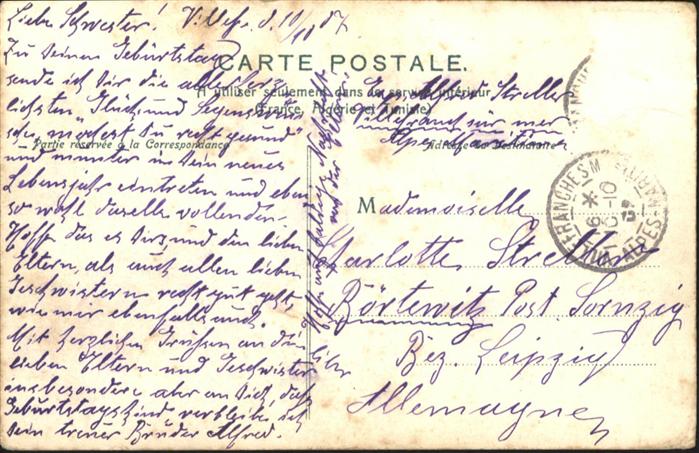 Liebe Schwester! Villefr. d. 10/10 07
Zu deinem Geburtstag
sende ich dir die aller herz-
lichsten Glück und Segenswün-
sche, möchtest Du recht gesund
und munter in dein neues
Lebensjahr eintreten und eben
so wohl dasselbe vollenden.
Hoffe das es Dir, und den lieben
Eltern, als auch allen lieben
Geschwistern recht gut geht,
wie mir ebenfalls und.
Mit herzlichen Grüßen an die
lieben Eltern und Geschwister
insbesondere aber an Dich, das
Geburtstagskind verbleibe ich
dein treuer Bruder Alfred.
Hoffe auf baldige
CARTE POSTALE.
A utiliser seulement dans le service intérieur
(France, Algérie et Tunisie)
Partie réservée à la Correspondance
Adresse du Destinataire
Alfred Streller
Villefranche sur mer
Alpes Maritimes
Mademoiselle
Charlotte Streller
Börtewitz Post Sornzig
Bez. Leipzig
Allemagne
VILLEFRANCHE S M
ALPES-MARITIMES